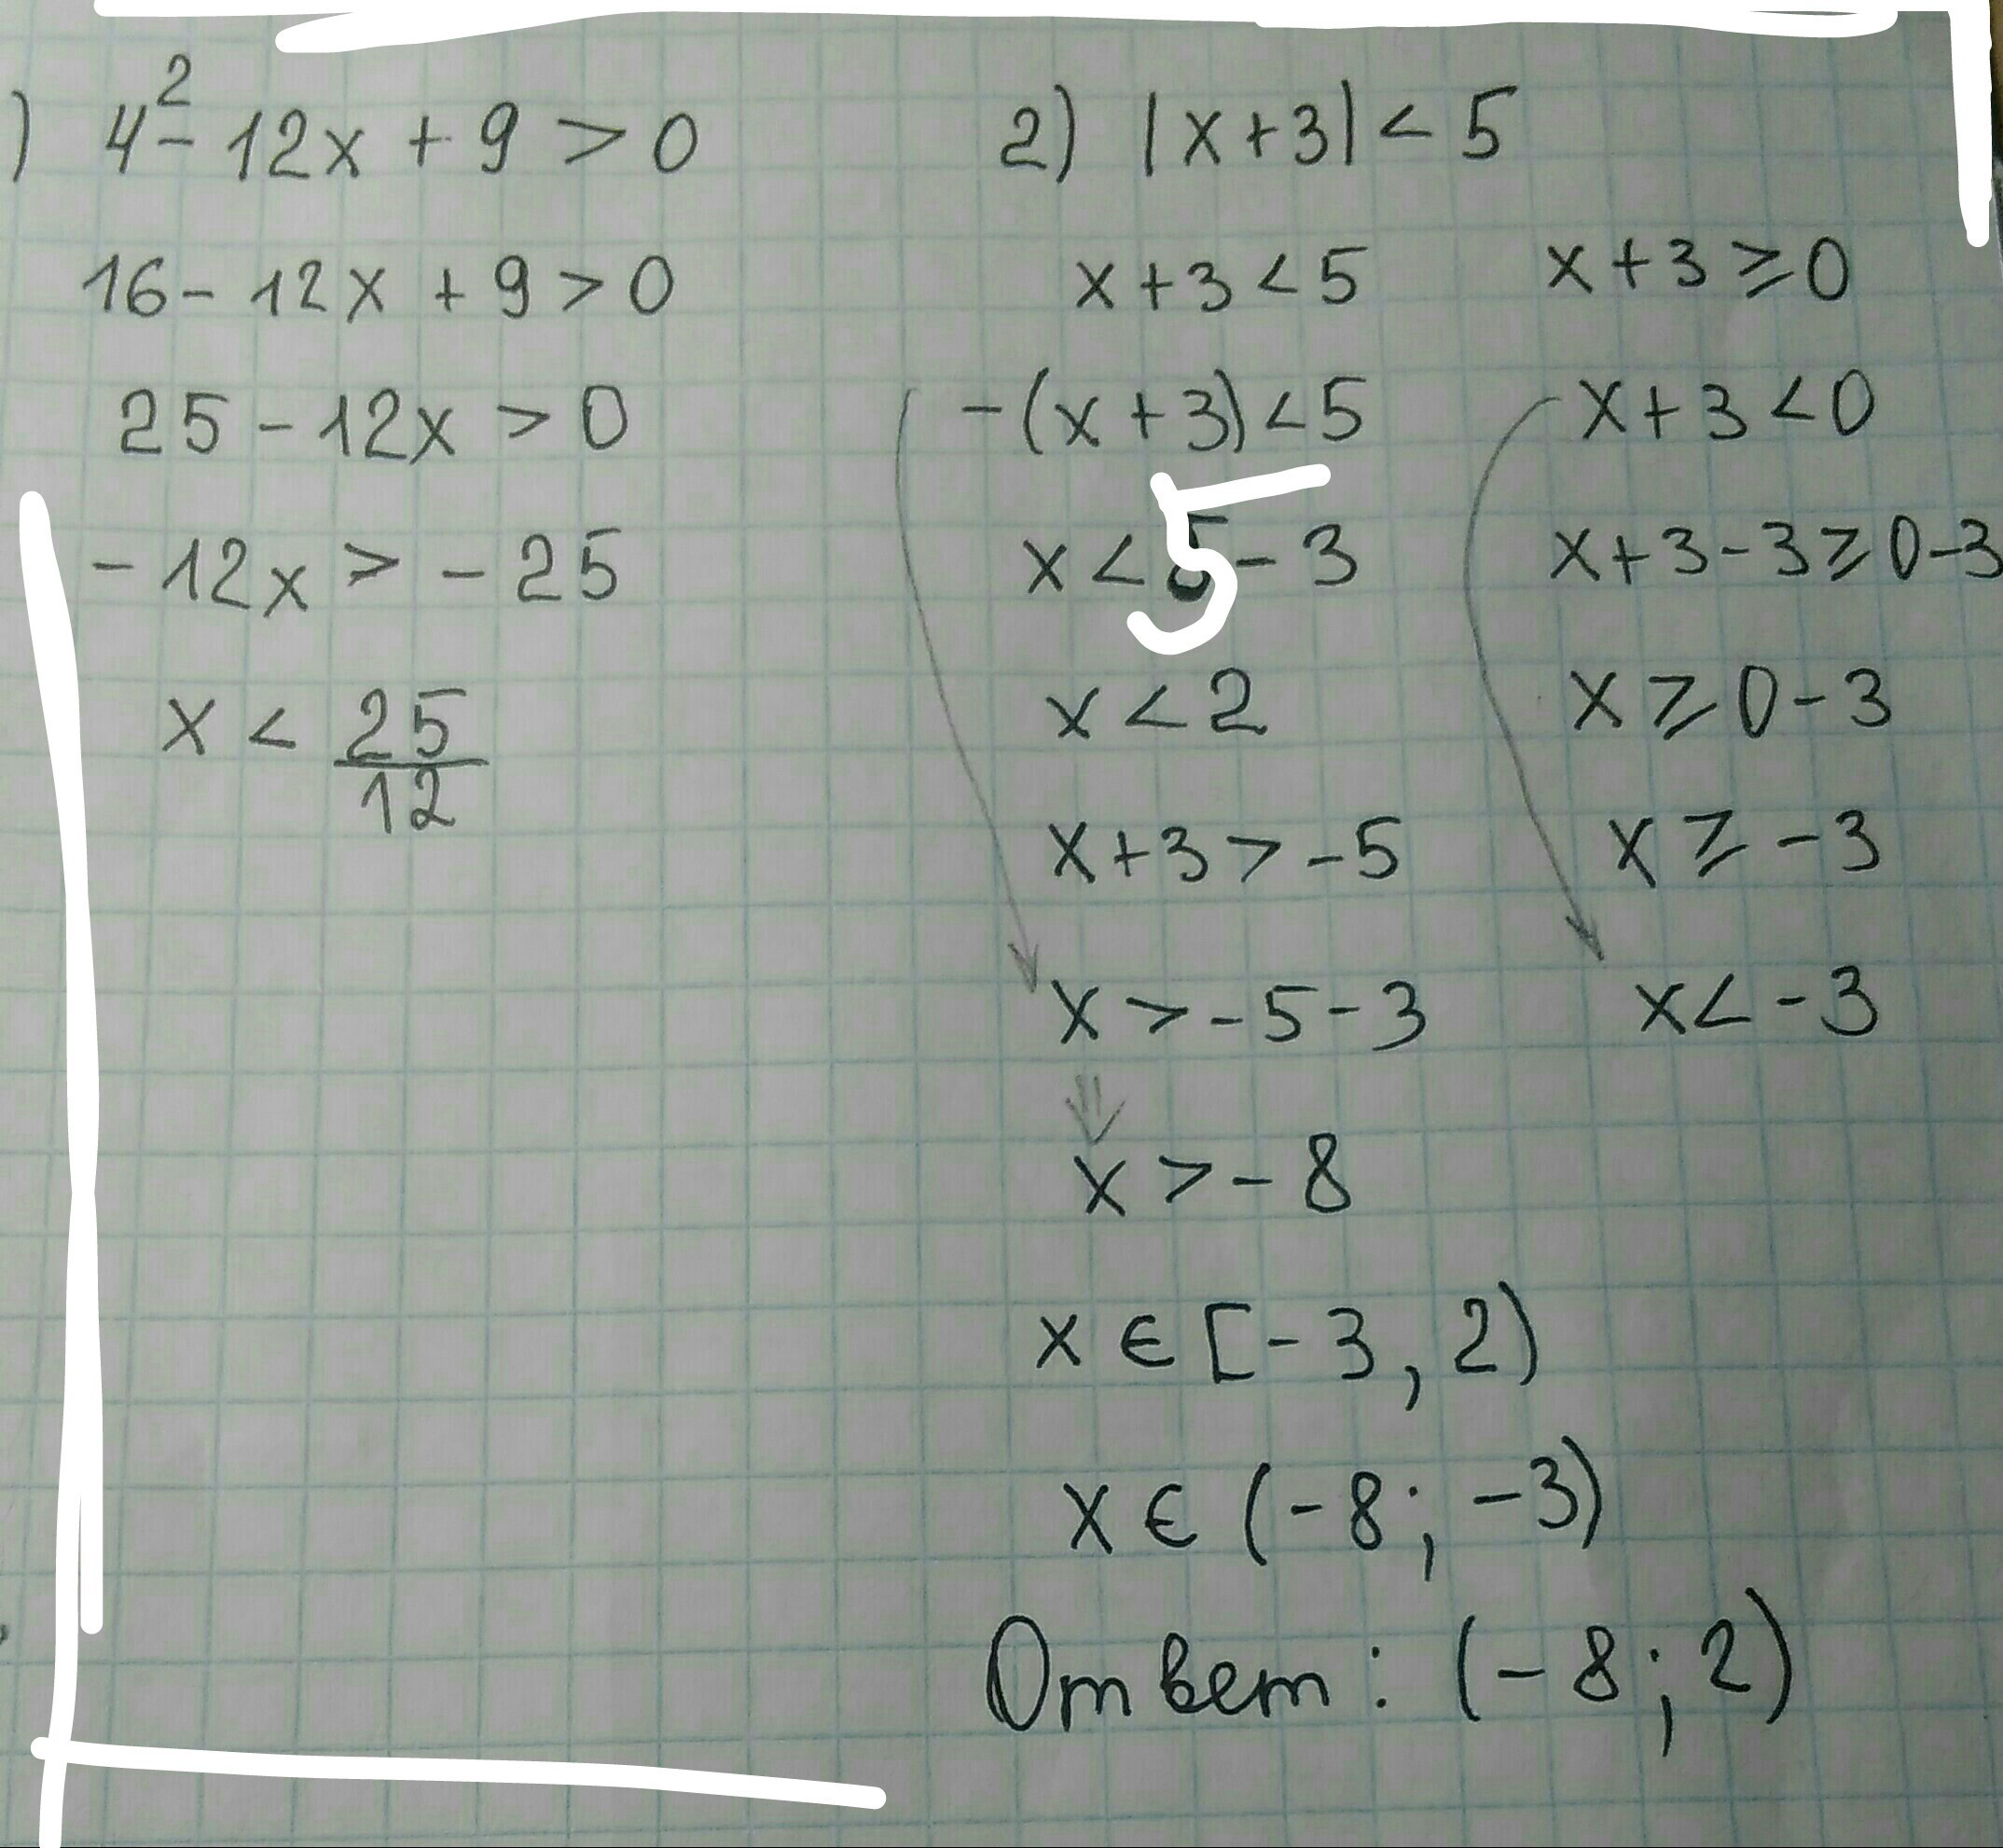 ) 4² - 12x + 9 > 0
16 - 12x + 9 > 0
25 - 12x > 0
- 12x > - 25
x < 25/12
2) |x + 3| < 5
x + 3 < 5 x + 3 ⩾ 0
-(x + 3) < 5 x + 3 < 0
x < 5 - 3 x + 3 - 3 ⩾ 0 - 3
x < 2 x ⩾ 0 - 3
x + 3 > - 5 x ⩾ - 3
x > - 5 - 3 x < - 3
⇓
x > - 8
x ∈ [- 3, 2)
x ∈ (- 8; - 3)
Ответ: (- 8; 2)